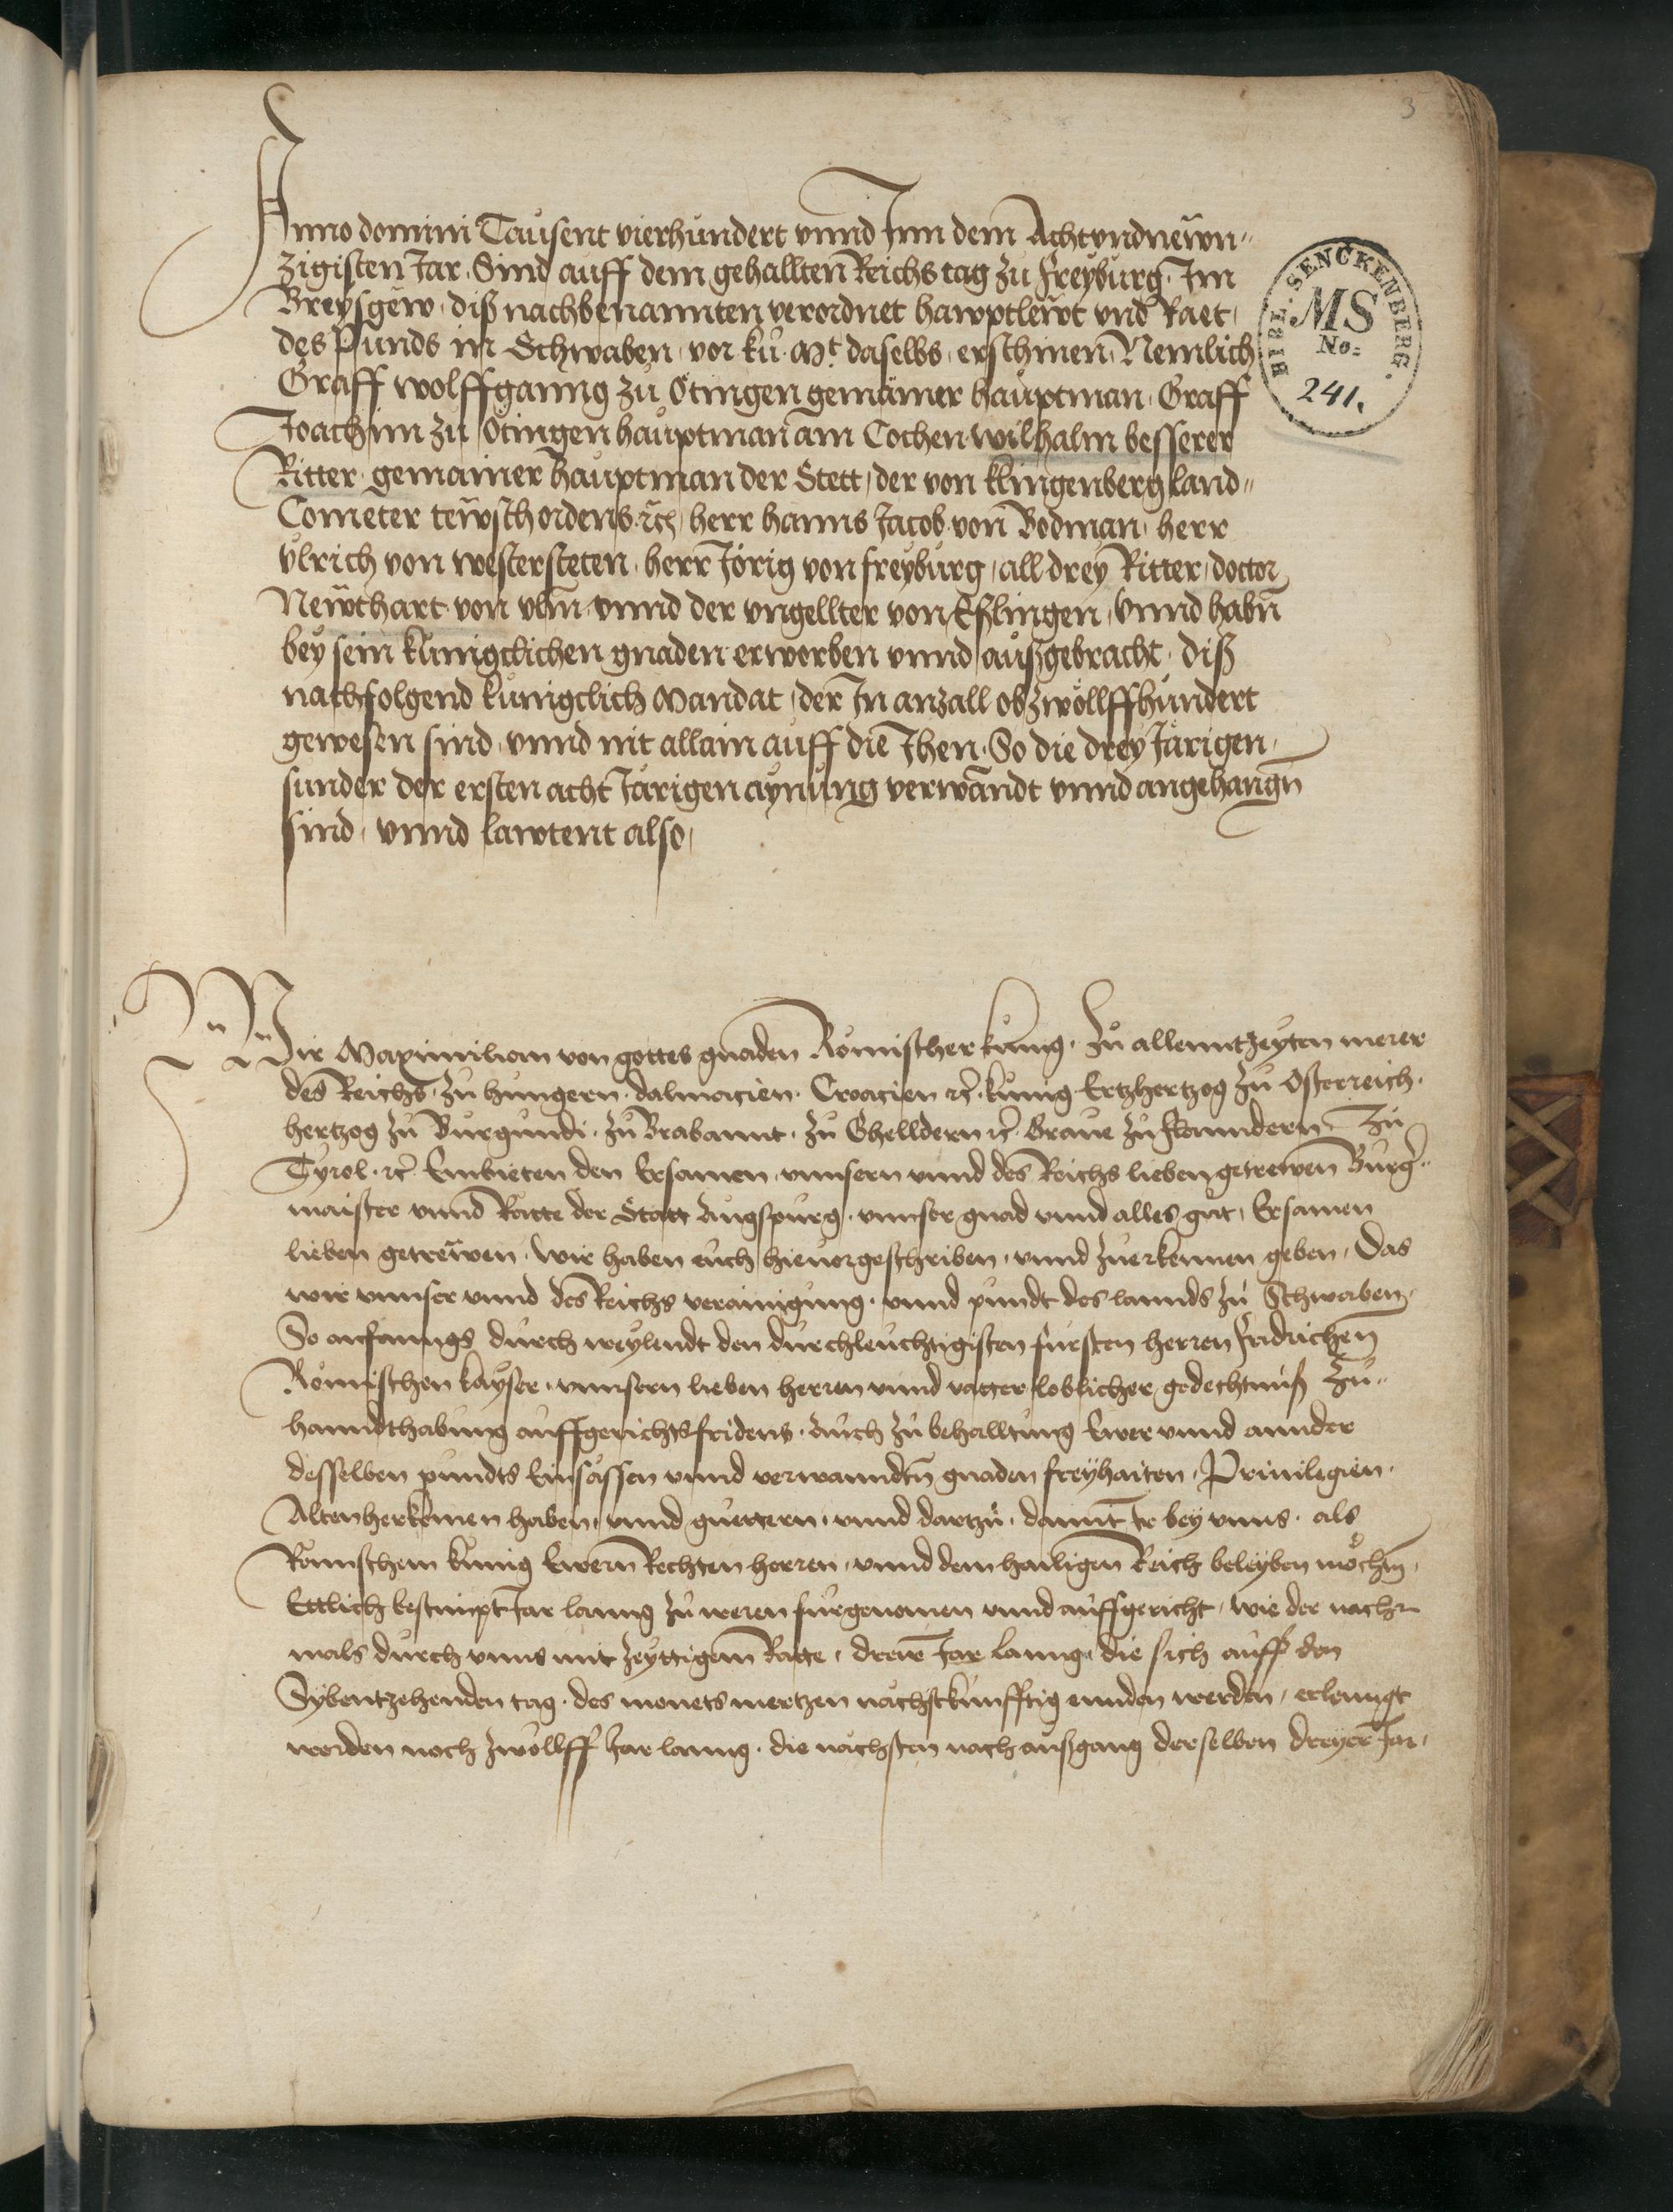 3
Anno domini Tausent vierhundert vnnd Jnn dem Achtvndnewn„
zigisten Jar. Sind auff dem gehallten Reichs tag zu freyburg. Jm
Breysgew. diß nachbenannten verordnet hawptlewt vnd Raet,
des Punds in Schwaben, vor kü. Mt. daselbs, erschinen, Nemlich
Graff wolffganng zu Ötingen gemainer hauptman, Graff
Joachim zu Ötingen hauptman am Cochen wilhalm besserer
Ritter. gemainer hauptman der Stett, der von klingenberg land„
Cometer tewsch ordens rc, herr hanns Jacob von Bodman, herr
vlrich von westersteten, herr Jörig von freyburg, all drey Ritter, doctor
Newthart von vlm vnnd der vngellter von Eßlingen, vnnd habn̄
bey sein kunigclichen gnaden erworben vnnd außgebracht, diß
nachfolgend kunigclich Mandat, der Jn anzall ob zwöllffhundert
gewesen sind, vnnd nit allain auff die Jhen. So die drey Järigen,
sunder der ersten acht Järigen aynung verwandt vnnd angehangn̄
sind, vnnd lawtent also,
Wir Maximilian von gottes gnaden Römischer kunig. Zu allenntzeyten merer
des Reichs, zu hungern, dalmacien. Croacien rc. kunig Ertzhertzog zu Osterreich.
hertzog zu Burgundi. zu Brabannt. zu Ghelldern rc. Graue zu flanndern Zu
Tyrol. rc. Embieten den Ersamen vnnsern vnnd des Reichs lieben getrewen Burg„
maister vnnd Ratte der Statt Augspurg. vnnser gnad vnnd alles gut, Ersamen
lieben getrewen. Wir haben euch hieuor geschriben, vnnd zuerkennen geben, Das
wir vnnser vnnd des Reichs verainigung. vnnd pundt des lannds zu Schwaben,
So anfanngs durch weylendt den durchleuchtigisten fursten herren fridrichen
Römischen kayser, vnnsern lieben herren vnnd vatter loblicher gedechtnuß Zu„
hanndthabung auffgerichts fridens, auch zu behalltung Ewer vnnd annder
desselben pundts Einsässen vnnd verwanndtn̄ gnaden freyhaiten, Priuilegien,
Alten herkomen haben, vnnd guettern, vnnd dartzu, damit Ir bey vnns, als
Romischem kunig Ewern Rechten herren, vnnd dem hailigen Reich beleyben möchtn̄,
Ettlich bestimpt Jar lanng zu weren furgenomen vnnd auffgericht, wie der nach„
mals durch vnns mit zeyttigem Ratte, dreie Jar lanng, die sich auff den
Sybentzehenden tag. des monets mertzen nächstkunfftig ennden werden, erlenngt
worden noch zwöllff Jar lanng. die nächsten nach außgang derselben dreyer Jar,
BIBL. SENCKENBERG.
MS
No.
241.